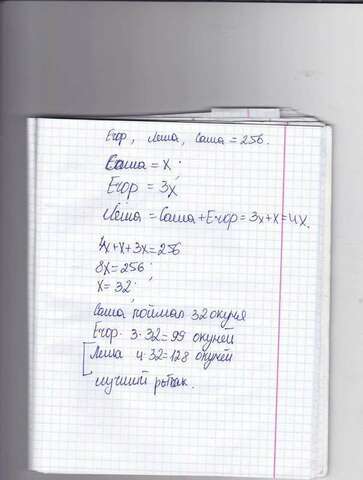 Егор, Леша, Саша = 256.
Саша = x;
Егор = 3x
Леша = Саша + Егор = 3x+x=4x.
4x+x+3x=256
8x=256;
x=32;
Саша поймал 32 окуня
Егор · 3·32=99 окуней
Леша 4·32=128 окуней
лучший рыбак.